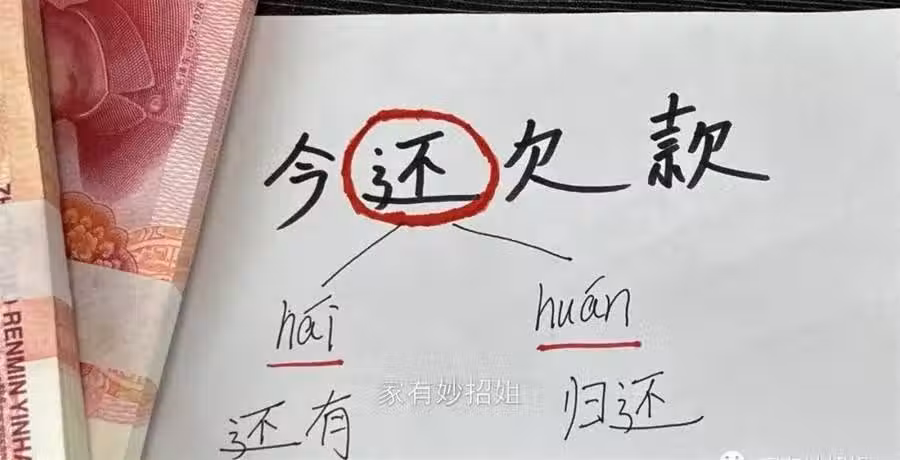 今还欠款
hái huán
还有 归还
家有妙招姐
RENMIN YINHA